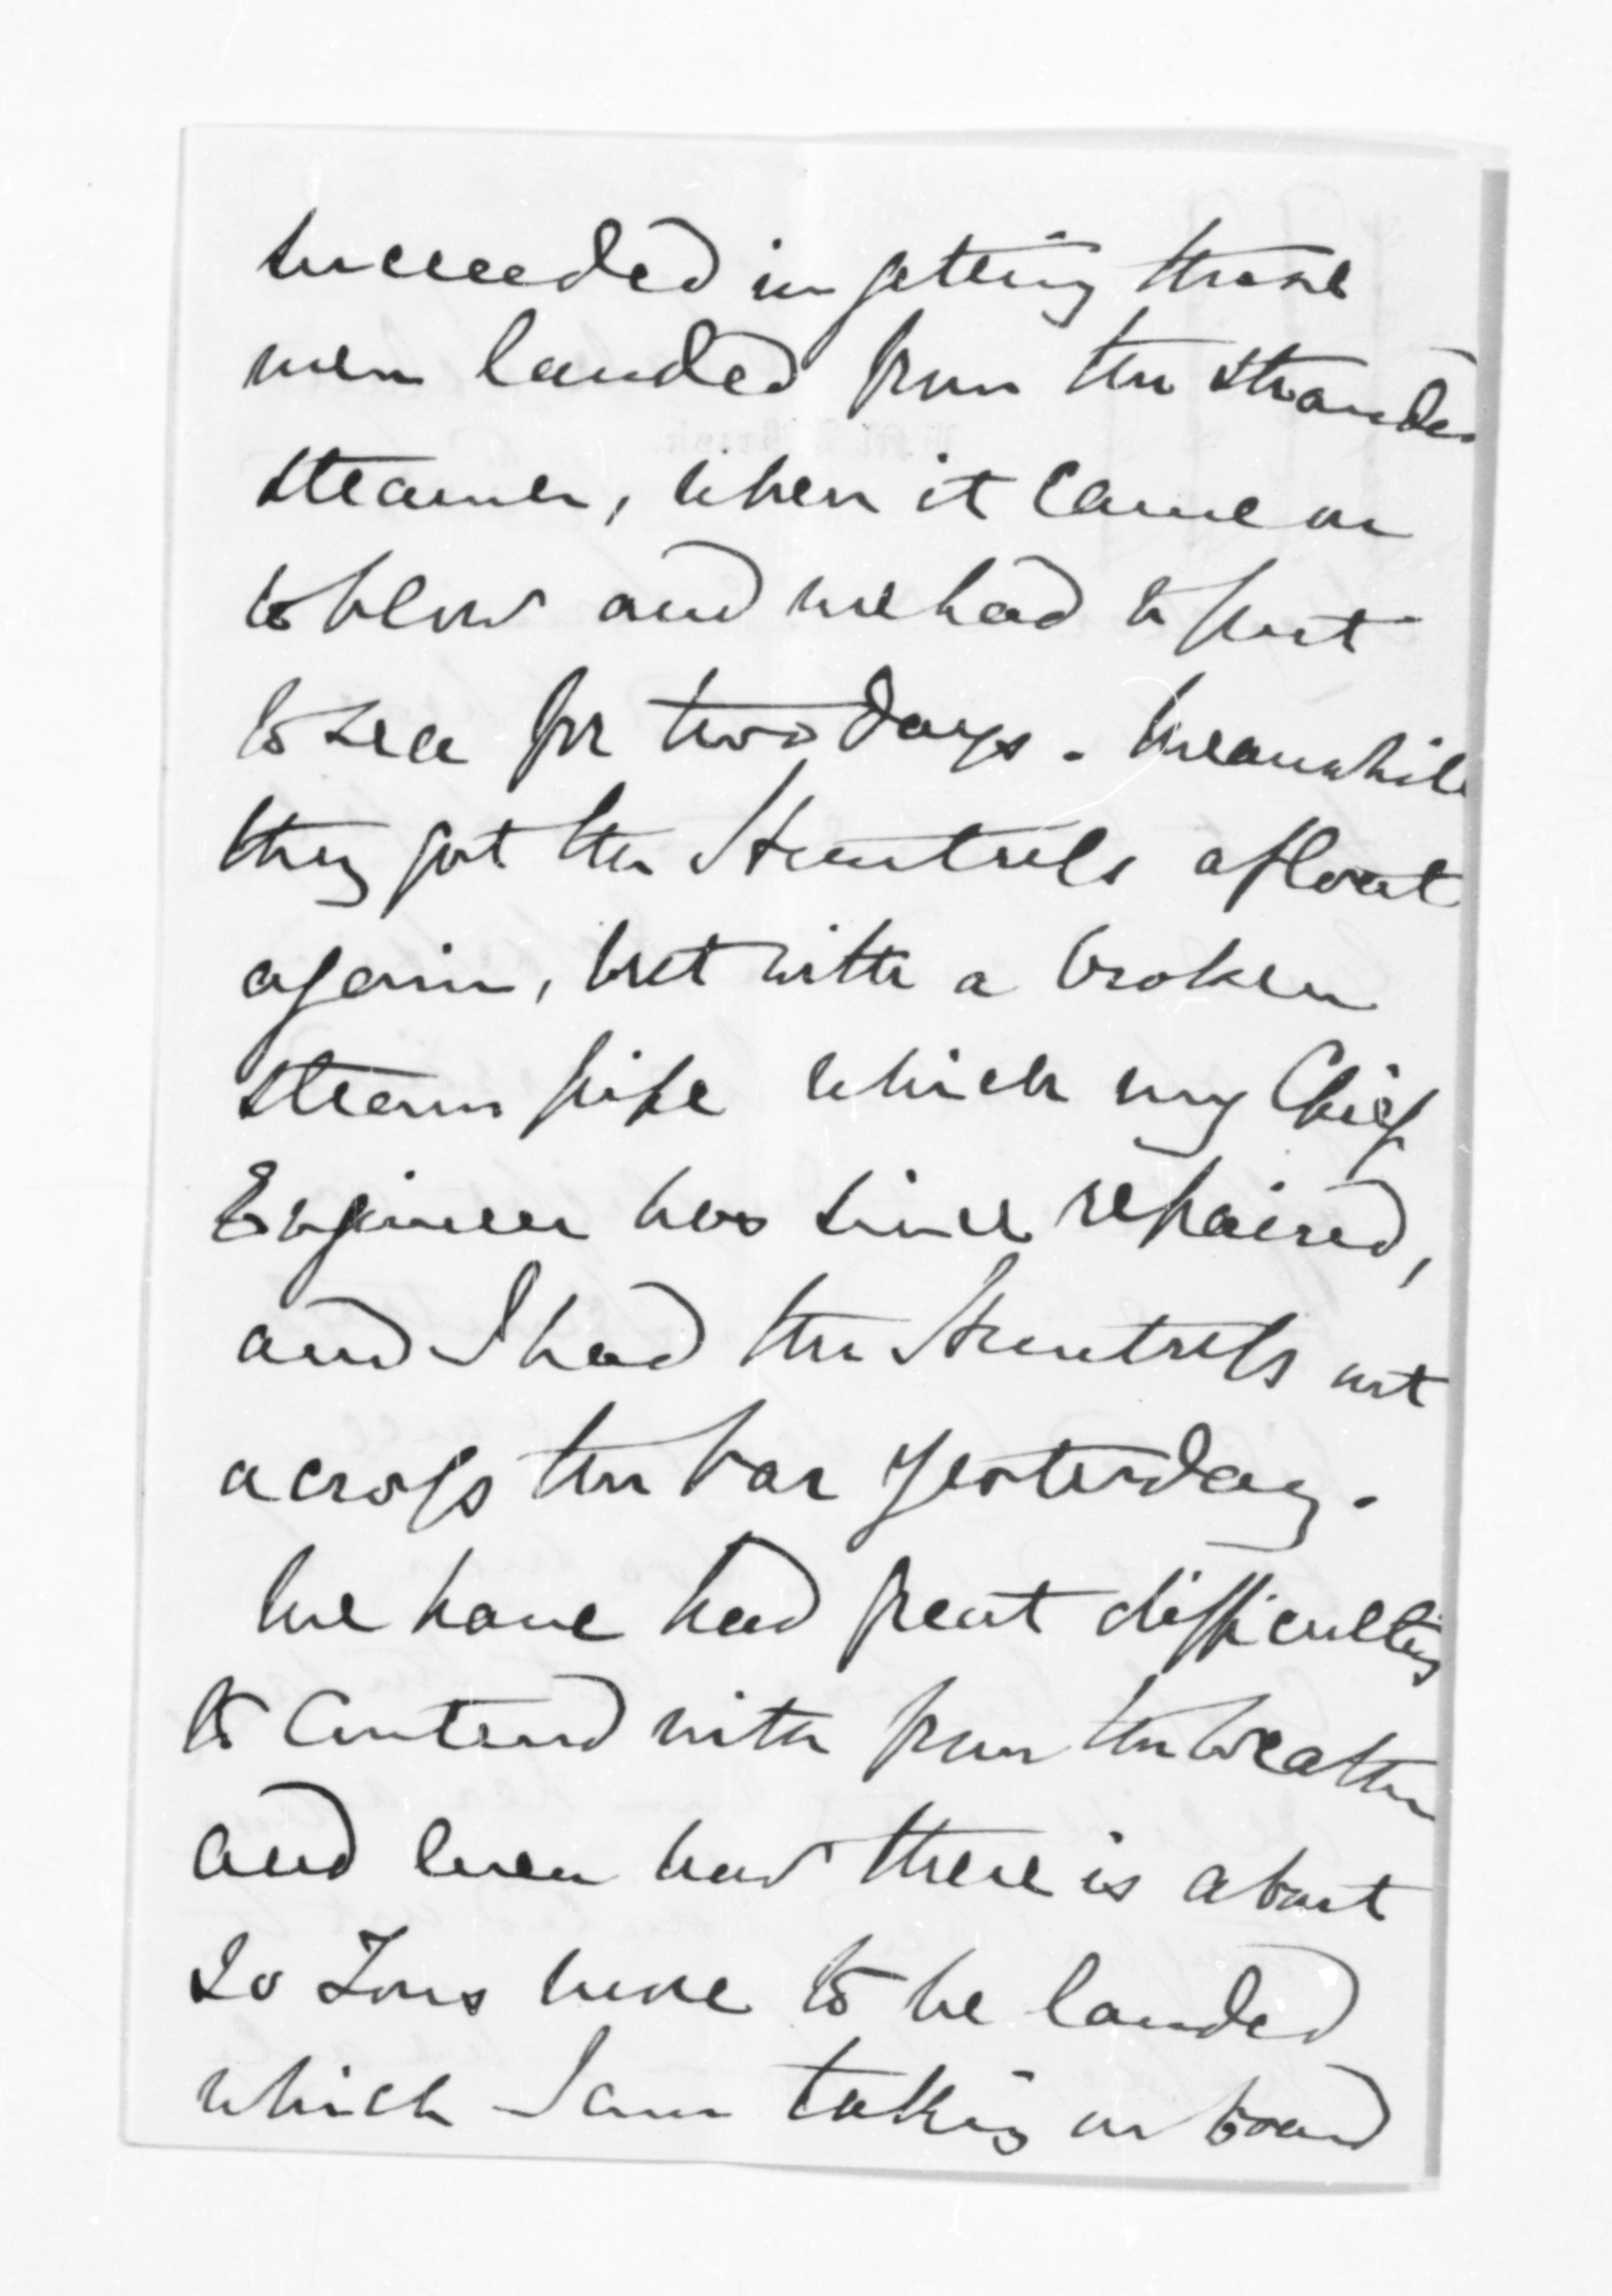 succeeded in getting these
men landed from the stranded
steamer, when it came on
to blow and we had to put
to sea for two days. Meanwhile
they got the Star afloat
again, but with a broken
steam pipe which my Chief
Engineer has since repaired,
and I had the out
across the bar yesterday.
We have had great difficulties
to contend with from the weather
and even now there is about
20 Tons more to be landed
which I am taking on board